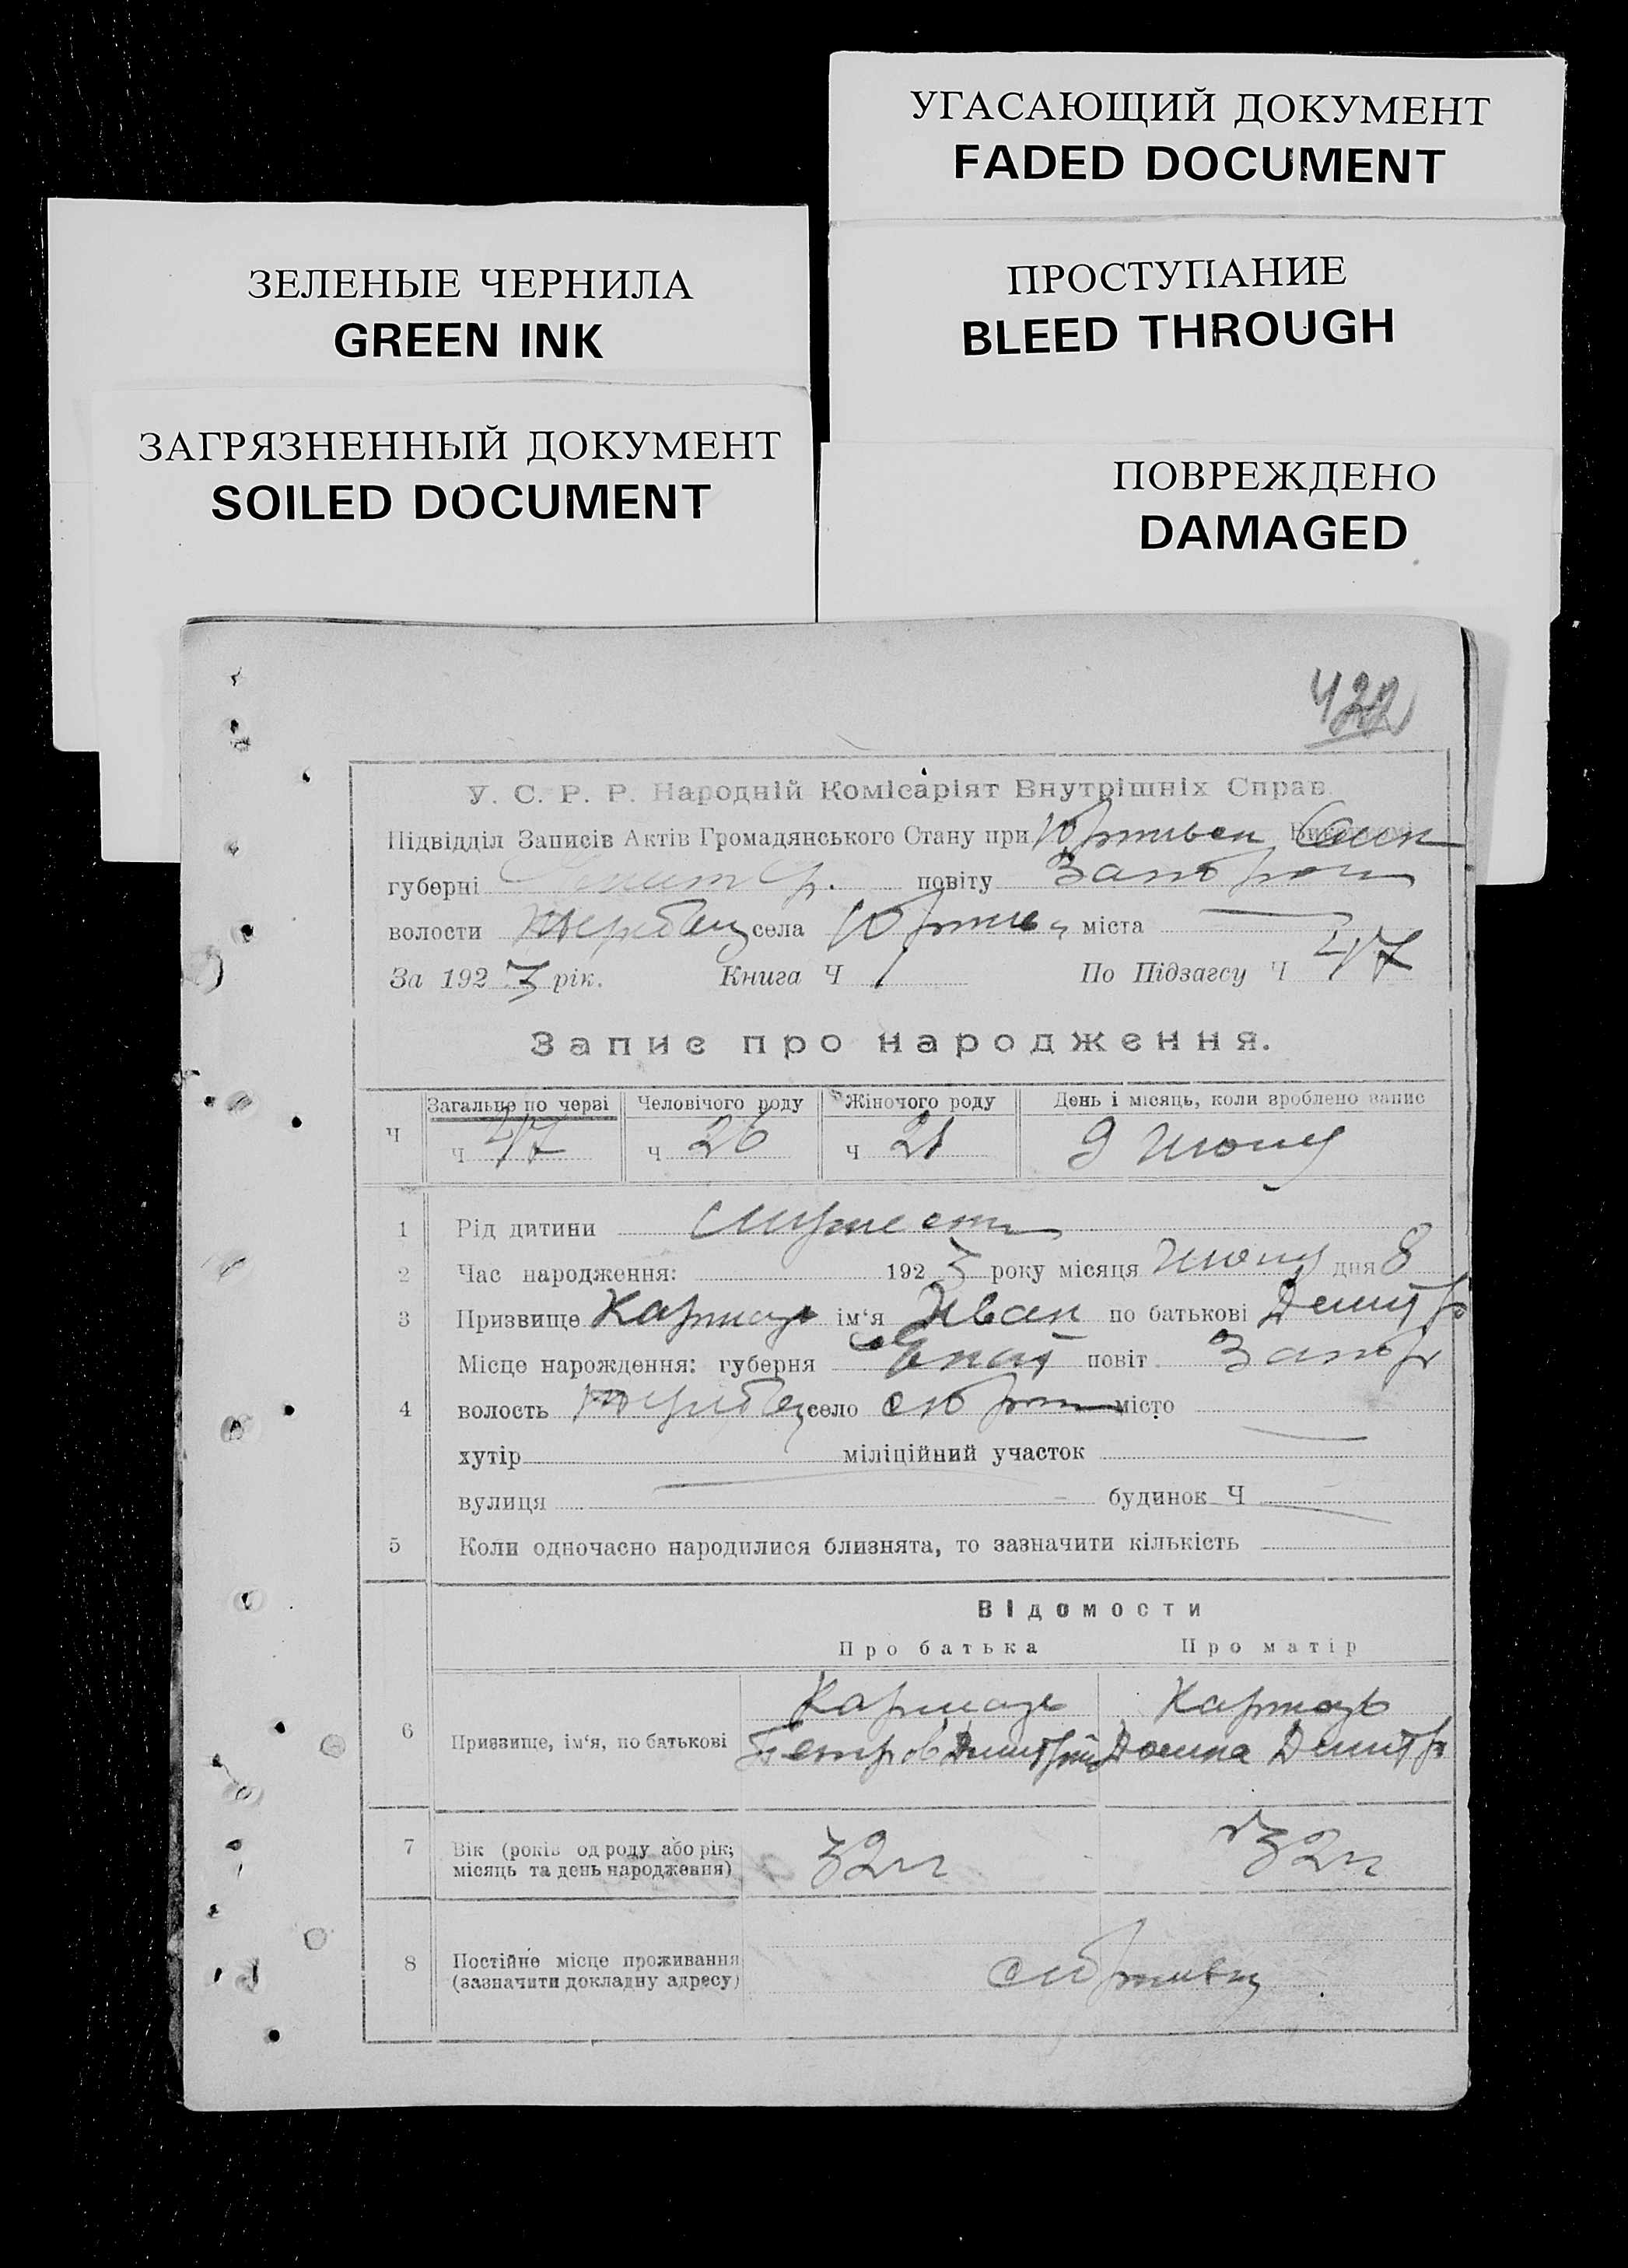 УГАСАЮЩИЙ ДОКУМЕНТ
FADED DOCUMENT
ЗЕЛЕНЫЕ ЧЕРНИЛА
GREEN INK
ПРОСТУПАНИЕ
BLEED THROUGH
ЗАГРЯЗНЕННЫЙ ДОКУМЕНТ
SOILED DOCUMENT
ПОВРЕЖДЕНО
DAMAGED
422
У. С. Р. Р. Народній Комісаріят Внутрішніх Справ
Підвідділ Записів Актів Громадянського Стану при
губерні повіту
волости села міста
За 1923 рік. Книга Ч 1 По Підзагсу Ч 47
Запис про народження.
Ч Загальне по черзі Человічого роду Жіночого роду День і місяць, коли зроблено запис
ч 47 ч 26 ч 21 9 Июня
1 Рід дитини
2 Час народження: 1923 року місяця Июня дня 8
3 Призвище Кармазь ім‘я Иван по батькові Дмитр
Місце нарождення: губерня повіт Запор
4 волость село місто
хутір міліційний участок
вулиця будинок Ч
5 Коли одночасно народилися близнята, то зазначити кількість
Відомости
Про батька Про матір
Кармазь Кармазь
6 Призвище, ім‘я, по батькові Петров Дмитрий Домна Дмитр
7 Вік (років од роду або рік, місяць та день народження) 32 32
8 Постійне місце проживання
(зазначити докладну адресу)